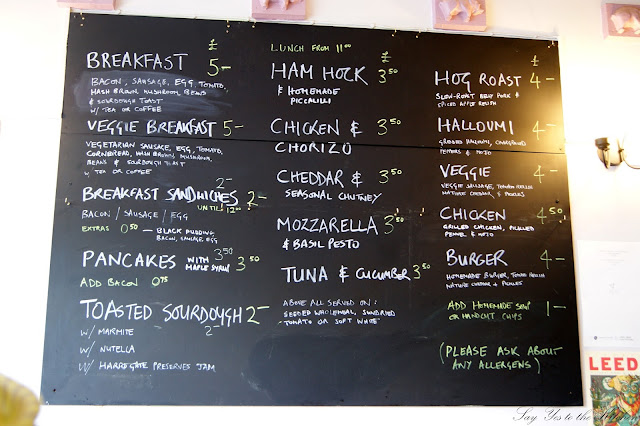 BREAKFAST £ 5-
BACON, SAUSAGE, EGG, TOMATO,
HASH BROWN, MUSHROOM, BEANS
& SOURDOUGH TOAST
W/ TEA OR COFFEE
VEGGIE BREAKFAST 5-
VEGETARIAN SAUSAGE, EGG, TOMATO,
CORNBREAD, HASH BROWN, MUSHROOM,
BEANS & SOURDOUGH TOAST
W/ TEA OR COFFEE
2-
BREAKFAST SANDWICHES 2-
UNTIL 12:00
BACON / SAUSAGE / EGG
EXTRAS 0.50 - BLACK PUDDING,
BACON, SAUSAGE, EGG
PANCAKES WITH MAPLE SYRUP 3.50 3.50
ADD BACON 0.75
TOASTED SOURDOUGH 2-
2-
W/ MARMITE
W/ NUTELLA
W/ HARROGATE PRESERVES JAM
LUNCH FROM 11:00
£
HAM HOCK 3.50
& HOMEMADE
PICCALILLI
CHICKEN & 3.50
CHORIZO
CHEDDAR & 3.50
SEASONAL CHUTNEY
MOZZARELLA 3.50
& BASIL PESTO
TUNA & CUCUMBER 3.50
ABOVE ALL SERVED ON:
SEEDED WHOLEMEAL, SUNDRIED
TOMATO OR SOFT WHITE
£
HOG ROAST 4-
SLOW-ROAST BELLY PORK &
SPICED APPLE RELISH
HALLOUMI 4-
GRIDDLED HALLOUMI, CHARGRILLED
PEPPERS & MOJO
VEGGIE 4-
VEGGIE SAUSAGE, TOMATO RELISH
MATURE CHEDDAR & PICKLES
CHICKEN 4.50
GRILLED CHICKEN, PICKLED
FENNEL & MOJO
BURGER 4-
HOMEMADE BURGER, TOMATO RELISH
MATURE CHEDDAR & PICKLES
ADD HOMEMADE SLAW 1-
OR HANDCUT CHIPS
(PLEASE ASK ABOUT
ANY ALLERGENS)
LEED
Say Yes to the